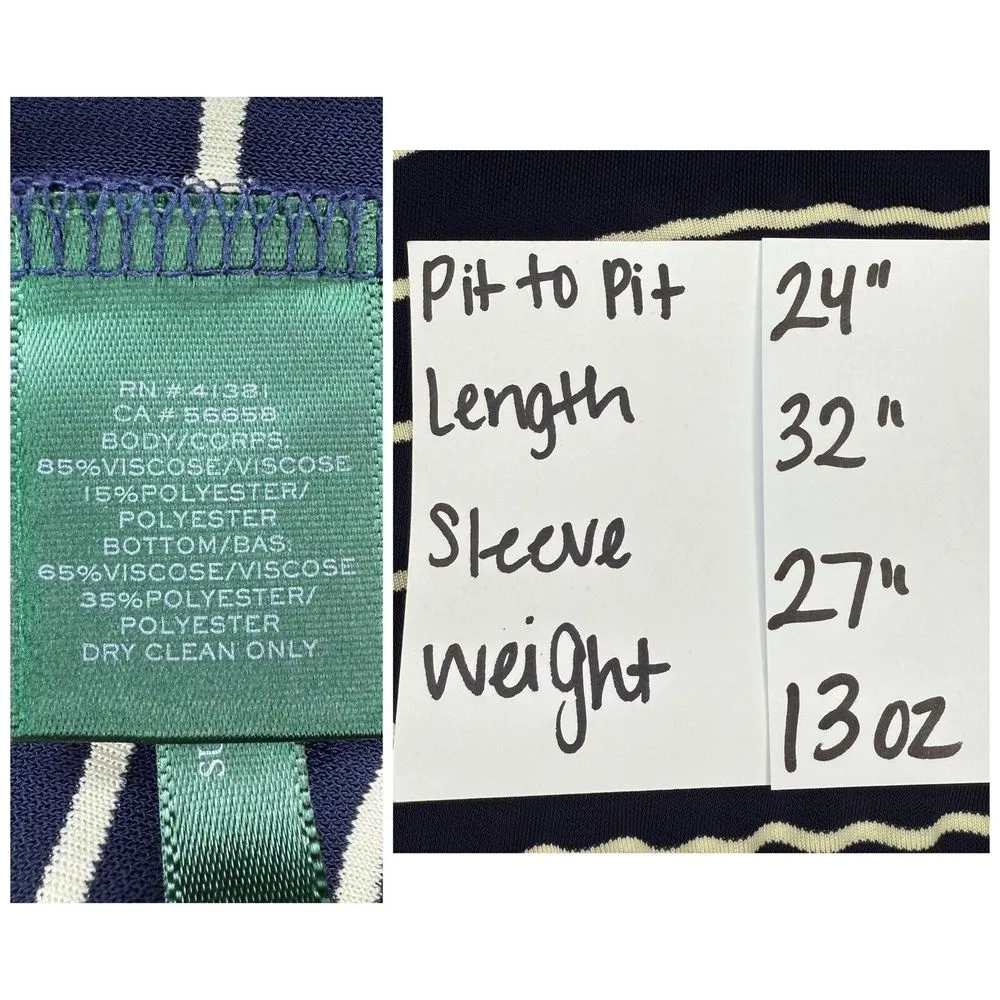 RN # 41381
CA # 56658
BODY/CORPS.
85%VISCOSE/VISCOSE
15%POLYESTER/
POLYESTER
BOTTOM/BAS.
65%VISCOSE/VISCOSE
35%POLYESTER/
POLYESTER
DRY CLEAN ONLY
Pit to Pit 24"
Length 32"
Sleeve 27"
weight 13 oz